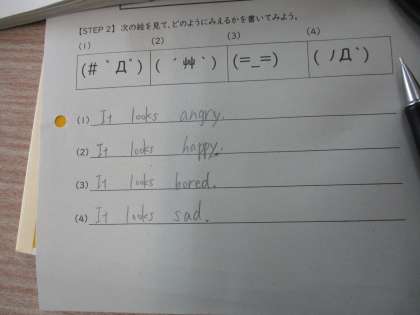 【STEP 2】 次の絵を見て、どのようにみえるかを書いてみよう。
(1) (2) (3) (4)
(#｀Д´) (´艸｀) (=_=) (ノД`)
(1) It looks angry.
(2) It looks happy.
(3) It looks bored.
(4) It looks sad.